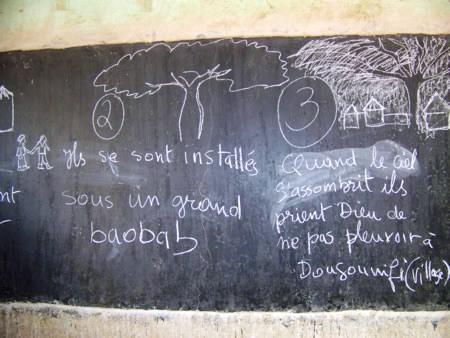 nt
2
Ils se sont installés
sous un grand
baobab
3
Quand le ciel
s'assombrit ils
prient Dieu de
ne pas pleuvoir à
Dougoumifi (village)